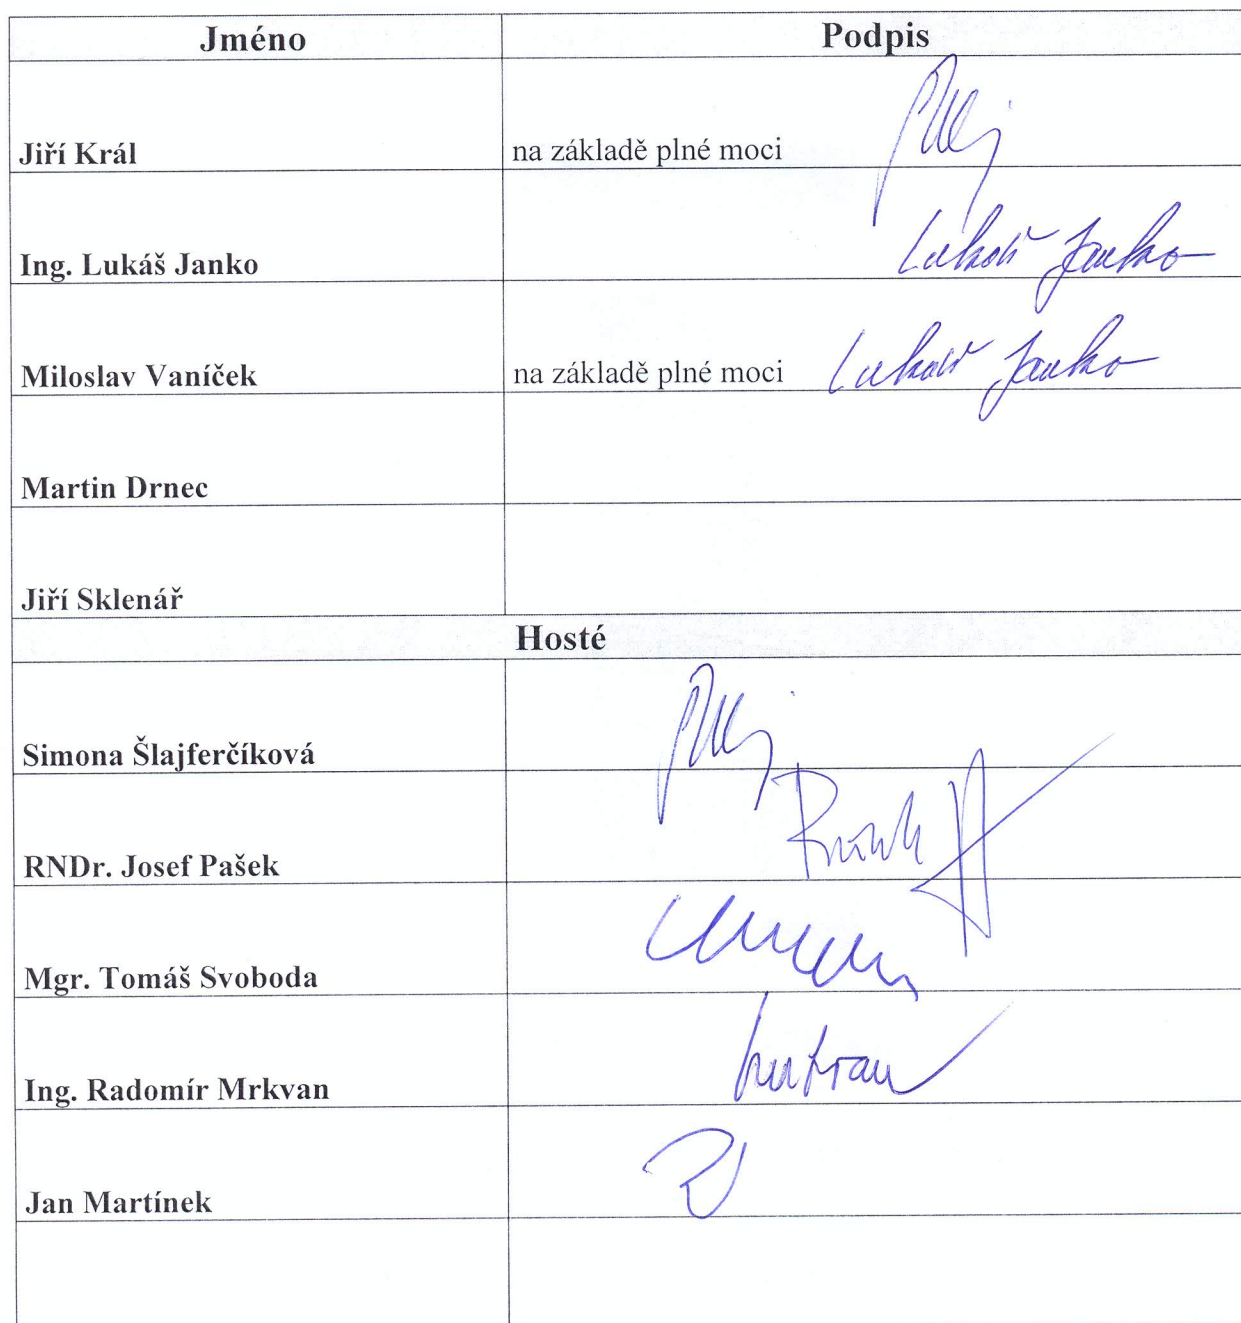 Jméno Podpis
Jiří Král na základě plné moci
Ing. Lukáš Janko Lukáš Janko
Miloslav Vaníček na základě plné moci Lukáš Janko
Martin Drnec
Jiří Sklenář
Hosté
Simona Šlajferčíková
RNDr. Josef Pašek
Mgr. Tomáš Svoboda
Ing. Radomír Mrkvan
Jan Martínek